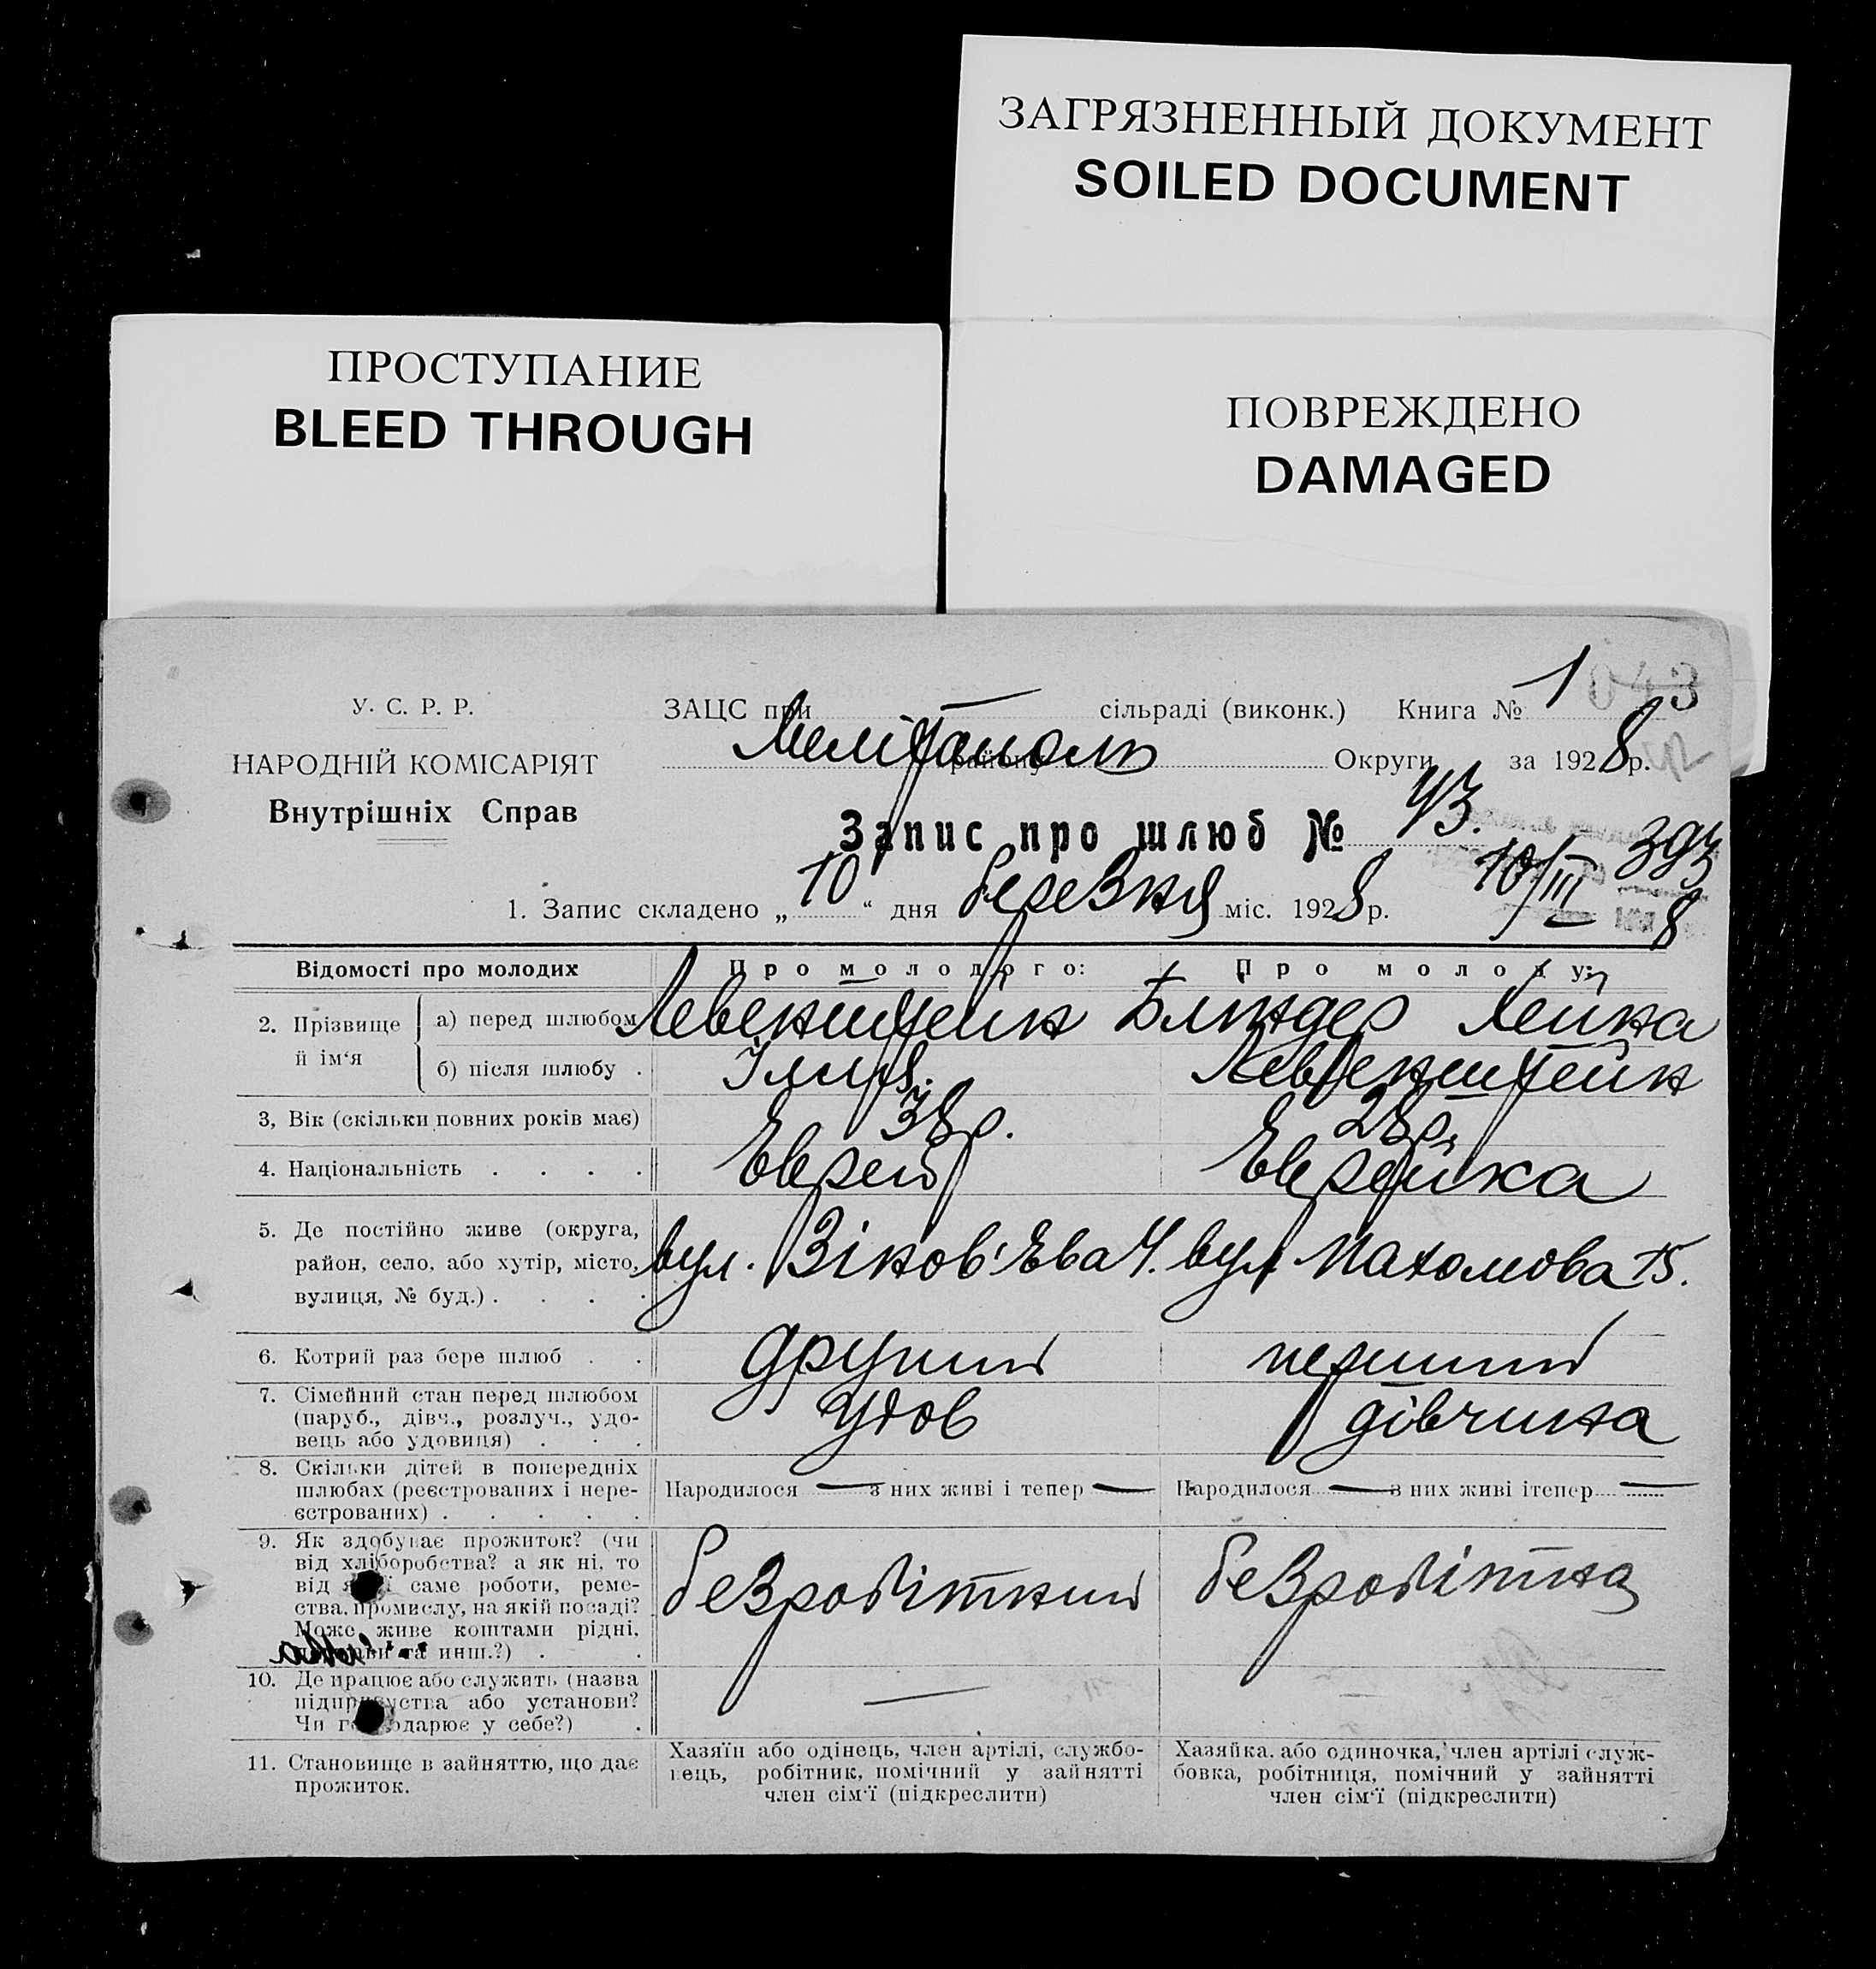 ЗАГРЯЗНЕННЫЙ ДОКУМЕНТ
SOILED DOCUMENT
ПРОСТУПАНИЕ
BLEED THROUGH
ПОВРЕЖДЕНО
DAMAGED
У. С. Р. Р.
НАРОДНІЙ КОМІСАРІЯТ
Внутрішніх Справ
ЗАЦС при сільраді (виконк.) Книга № 1
043
Мелітополь району Округи за 1928 р.
Запис про шлюб № 43.
393
1. Запис складено „ 10 “ дня березня міс. 1928 р.
10/III 8
Відомості про молодих Про молодого: Про молоду:
2. Прізвище й ім‘я
а) перед шлюбом Левенштейн Бліндер Хейка
б) після шлюбу . Ілля. Левенштейн
3, Вік (скільки повних років має) 38 р. 28 р.
4. Національність . . . . Еврей Еврейка
5. Де постійно живе (округа,
район, село, або хутір, місто,
вулиця, № буд.) . . . .
вул. Зінов'Ева 4. вул. Пахомова 15.
6. Котрий раз бере шлюб . . другий перший
7. Сімейний стан перед шлюбом
(паруб., дівч., розлуч., удо-
вець або удовиця) . . .
удов дівчина
8. Скільки дітей в попередніх
шлюбах (реєстрованих і нере-
єстрованих) . . . . .
Народилося — з них живі і тепер —
Народилося — з них живі і тепер —
9. Як здобуває прожиток? (чи
від хліборобства? а як ні, то
від саме роботи, реме-
ства, промислу, на якій посаді?
Може живе коштами рідні,
та инш.?) . .
безробітний безробітна
10. Де працює або служить (назва
підприємства або установи?
Чи господарює у себе?) .
—
11. Становище в зайняттю, що дає
прожиток.
Хазяїн або одінець, член артілі, службо-
вець, робітник, помічний у зайнятті
член сім‘ї (підкреслити)
Хазяйка. або одиночка, член артілі служ-
бовка, робітниця, помічний у зайнятті
член сім‘ї (підкреслити)